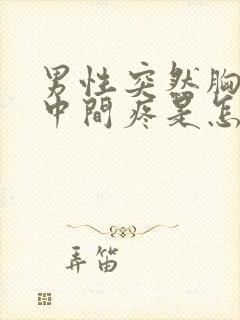 男性突然胸
中間疼是怎
弄笛